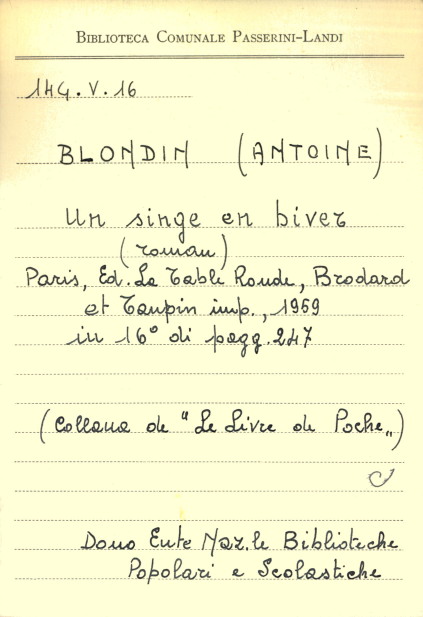 BIBLIOTECA COMUNALE PASSERINI-LANDI
144.V.16
BLONDIN (ANTOINE)
Un singe en hiver
(roman)
Paris, Ed. La Table Ronde, Brodard
et Taupin imp., 1969
in 16° di pagg. 247
(Collana de "Le Livre de Poche„)
Dono Ente Naz.le Biblioteche
Popolari e Scolastiche